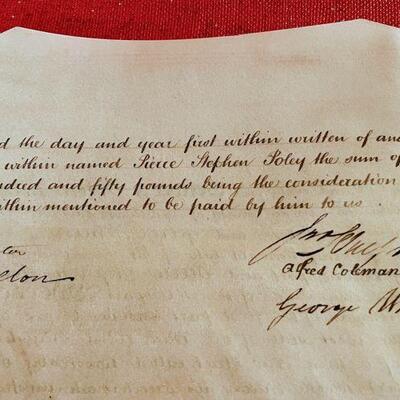 d the day and year first within written of and
within named Pierce Stephen Foley the sum of
ndred and fifty pounds being the consideration
ithin mentioned to be paid by him to us.
alfred Coleman
George